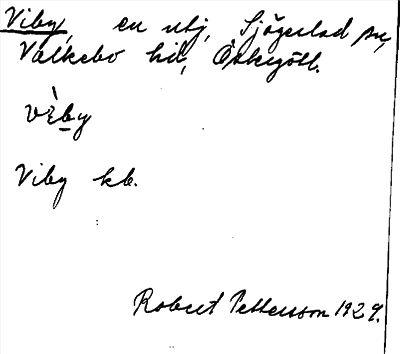 Viby, en utj, Sjögestad sn,
Valkebo hd, Östergötl.
vìby
Viby kb.
Robert Pettersson 1929.